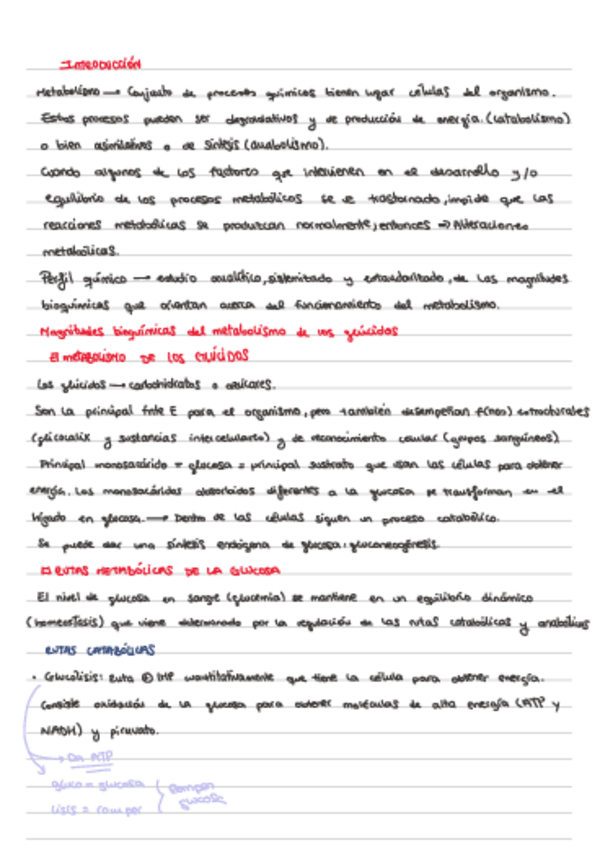 INTRODUCCIÓN
Metabolismo → Conjunto de procesos químicos tienen lugar células del organismo.
Estos procesos pueden ser degradativos y de producción de energía. (Catabolismo)
o bien asimilativos o de síntesis (anabolismo).
Cuando algunos de los factores que intervienen en el desarrollo y/o
equilibrio de los procesos metabólicos se ve trastornado, impide que las
reacciones metabólicas se produzcan normalmente, entonces ⇒ Alteraciones
metabólicas.
Perfil químico → estudio analítico, sistemitado y estandaritado, de las magnitudes
bioquímicas que orientan acerca del funcionamiento del metabolismo.
Magnitudes bioquímicas del metabolismo de los glúcidos
El METABOLISMO DE LOS GLÚCIDOS
Los glúcidos → carbohidratos o azúcares.
Son la principal fnte E para el organismo, pero también desempeñan f(nes) estructurales
(glicocalix y sustancias intercelulares) y de reconocimiento celular (grupos sanguíneos)
Principal monosacárido = glucosa = principal sustrato que usan las células para obtener
energía. Los monosacáridos absorbidos diferentes a la glucosa se transforman en el
hígado en glucosa. → Dentro de las células siguen un proceso catabólico.
Se puede dar una síntesis endógena de glucosa: gluconeogénesis.
RUTAS METABÓLICAS DE LA GLUCOSA
El nivel de glucosa en sangre (glucemia) se mantiene en un equilibrio dinámico
(homeostasis) que viene determinado por la regulación de las rutas catabólicas y anabólicas
RUTAS CATABÓLICAS
· Glucolisis: ruta ⊕ IMP cuantitativamente que tiene la célula para obtener energía.
Consiste oxidación de la glucosa para obtener moléculas de alta energía (ATP y
NADH) y piruvato.
→ Dn ATP
gluco = glucosa
lisis = romper
Romper
glucosa